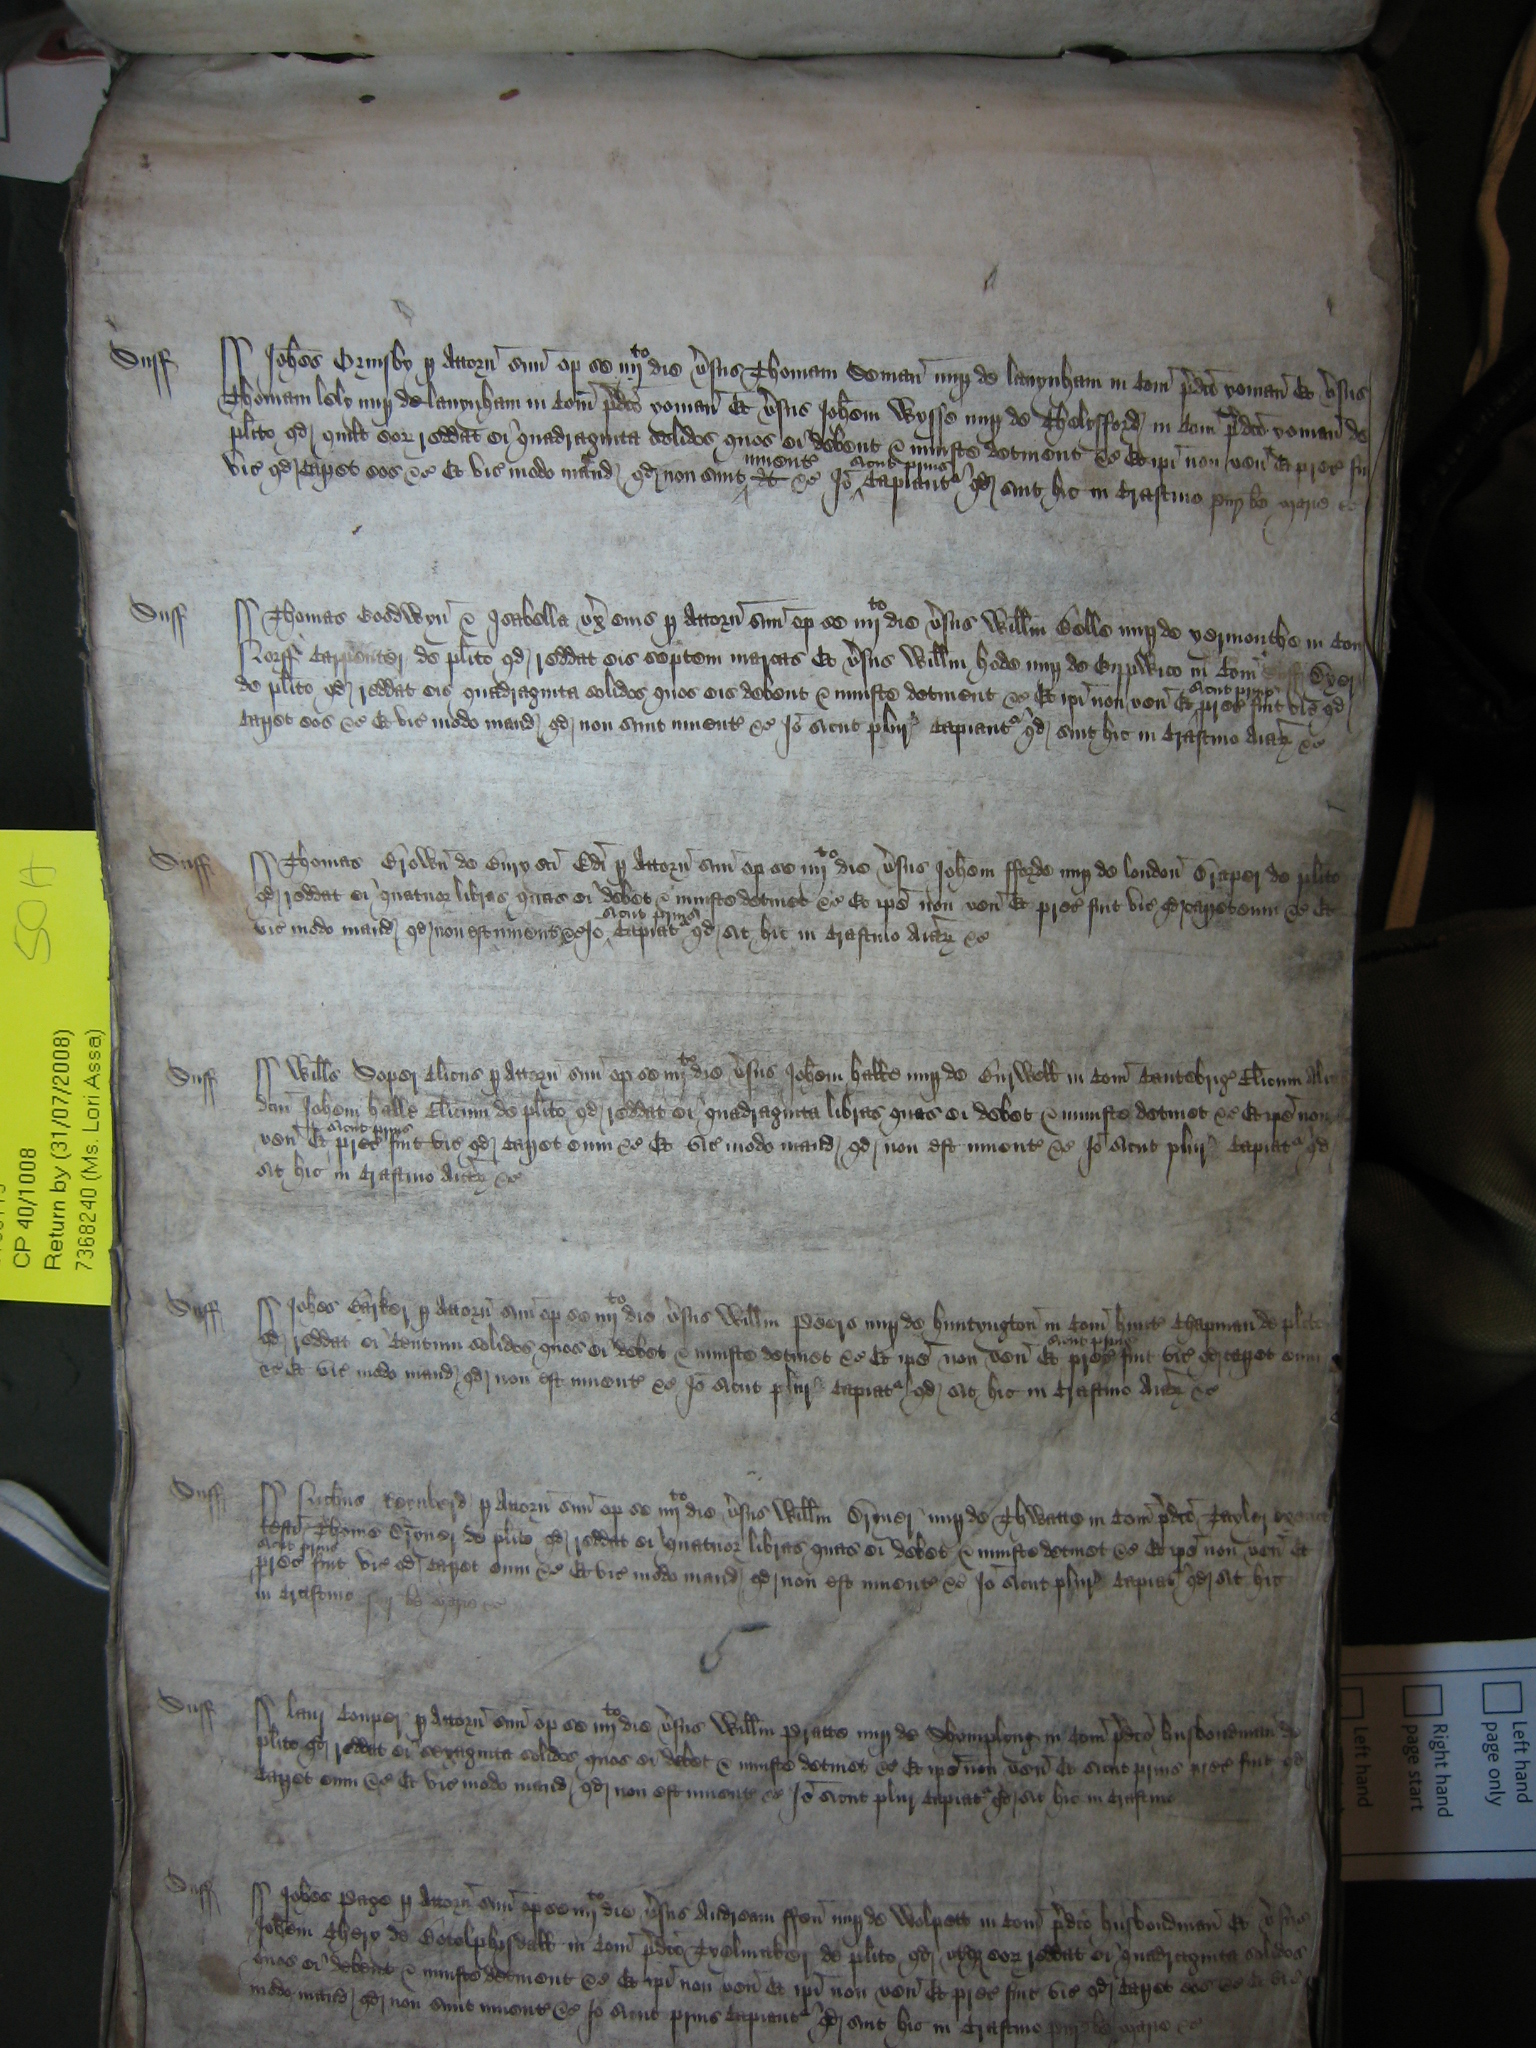 Suff Johes Ormsby p Attorn suu op se iiij to die vsus Thomam Soman nup de lanynham in Com pdco yoman Et vsus
Thomam lely nup de lanynham in Com pdco yoman Et vsus Johem Wysse nup de Thelofford in Com pdco yoman de
plito qd quilt eor reddat ei quadraginta solidos quos ei debent & iniuste detinent &c Et ipi non ven Et prec fuit
vic qd capet eos &c Et vic modo mand qd non sunt invent &c Io sicut prius Capiant qd sint hic in Crastino pur be marie &c
Suff Thomas Goodwyn & Isabella ux eius p Attorn suu op se iiij to die vsus Willm Belle nup de yermouthe in Com
Norff Carpenter de plito qd reddat eis septem marcas Et vsus Willm hode nup de Gyppewico in Com Suff Dyer
de plito qd reddat eis quadraginta solidos quos eis debent & iniuste detinent &c Et ipi non ven Et sicut prius prec fuit vic qd
Capet eos &c Et vic modo mand qd non sunt invent &c Io sicut plur Capiant qd sint hic in Crastino Aiar &c
Suff Thomas Brown de Bury sci Edi p Attorn suu op se iiij to die vsus Johem fforde nup de london Draper de plito
qd reddat ei quatuor libras quas ei debet & iniuste detinet &c Et ipe non ven Et prec fuit vic qd capet eum &c Et
vic modo mand qd non est invent &c Io sicut prius Capiat qd sit hic in Crastino Aiar &c
Suff Wills Soper Clicus p Attorn suu op se iiij to die vsus Johem halle nup de Burwell in Com Cantebrig Clicum Alias
dcm Johem halle Clicum de plito qd reddat ei quadraginta libras quas ei debet & iniuste detinet &c Et ipe non
ven Et sicut prius prec fuit vic qd Capet eum &c Et vic modo mand qd non est invent &c Io sicut plur Capiat qd
sit hic in Crastino Aiar &c
Suff Johes Barker p Attorn suu op se iiij to die vsus Willm Peers nup de huntyngton in Com hunt Chapman de plito
qd reddat ei Centum solidos quos ei debet & iniuste detinet &c Et ipe non ven Et sicut prius prec fuit vic qd capet eum
&c Et vic modo mand qd non est invent &c Io sicut plur Capiat qd sit hic in Crastino Aiar &c
Suff p Attorn suu op se iiij to die vsus Willm nup de Thwatte in Com pdco Tayler
testi Thome de plito qd reddat ei quatuor libras quas ei debet & iniuste detinet &c Et ipe non ven Et
sicut prius prec fuit vic qd Capet eum &c Et vic modo mand qd non est invent &c Io sicut plur Capiat qd sit hic
in Crastino pur be marie &c
Suff laur Couper p Attorn suu op se iiij to die vsus Willm Pratte nup de Shymplyng in Com pdco husbondman de
plito qd reddat ei sexaginta solidos quos ei debet & iniuste detinet &c Et ipe non ven Et sicut prius prec fuit qd
Capet eum &c Et vic modo mand qd non est invent &c Io sicut plur Capiat qd sit hic in Crastino
Suff Johes Page p Attorn suu op se iiij to die vsus Andream ffen nup de Wolpett in Com pdco husbondman Et vsus
Johem Chery de Botolphysdale in Com pdco de plito qd utrq eor reddat ei quadraginta solidos
quos ei debent & iniuste detinent &c Et ipi non ven Et ipi non ven Et prec fuit vic qd Capet eos &c Et vic
modo mand qd non sunt invent &c Io sicut prius Capiant qd sint hic in Crastino pur be marie &c
50A
CP 40/1008
Return by (31/07/2008)
7368240 (Ms. Lori Assa)
Left hand page only
Right hand page start
Left hand